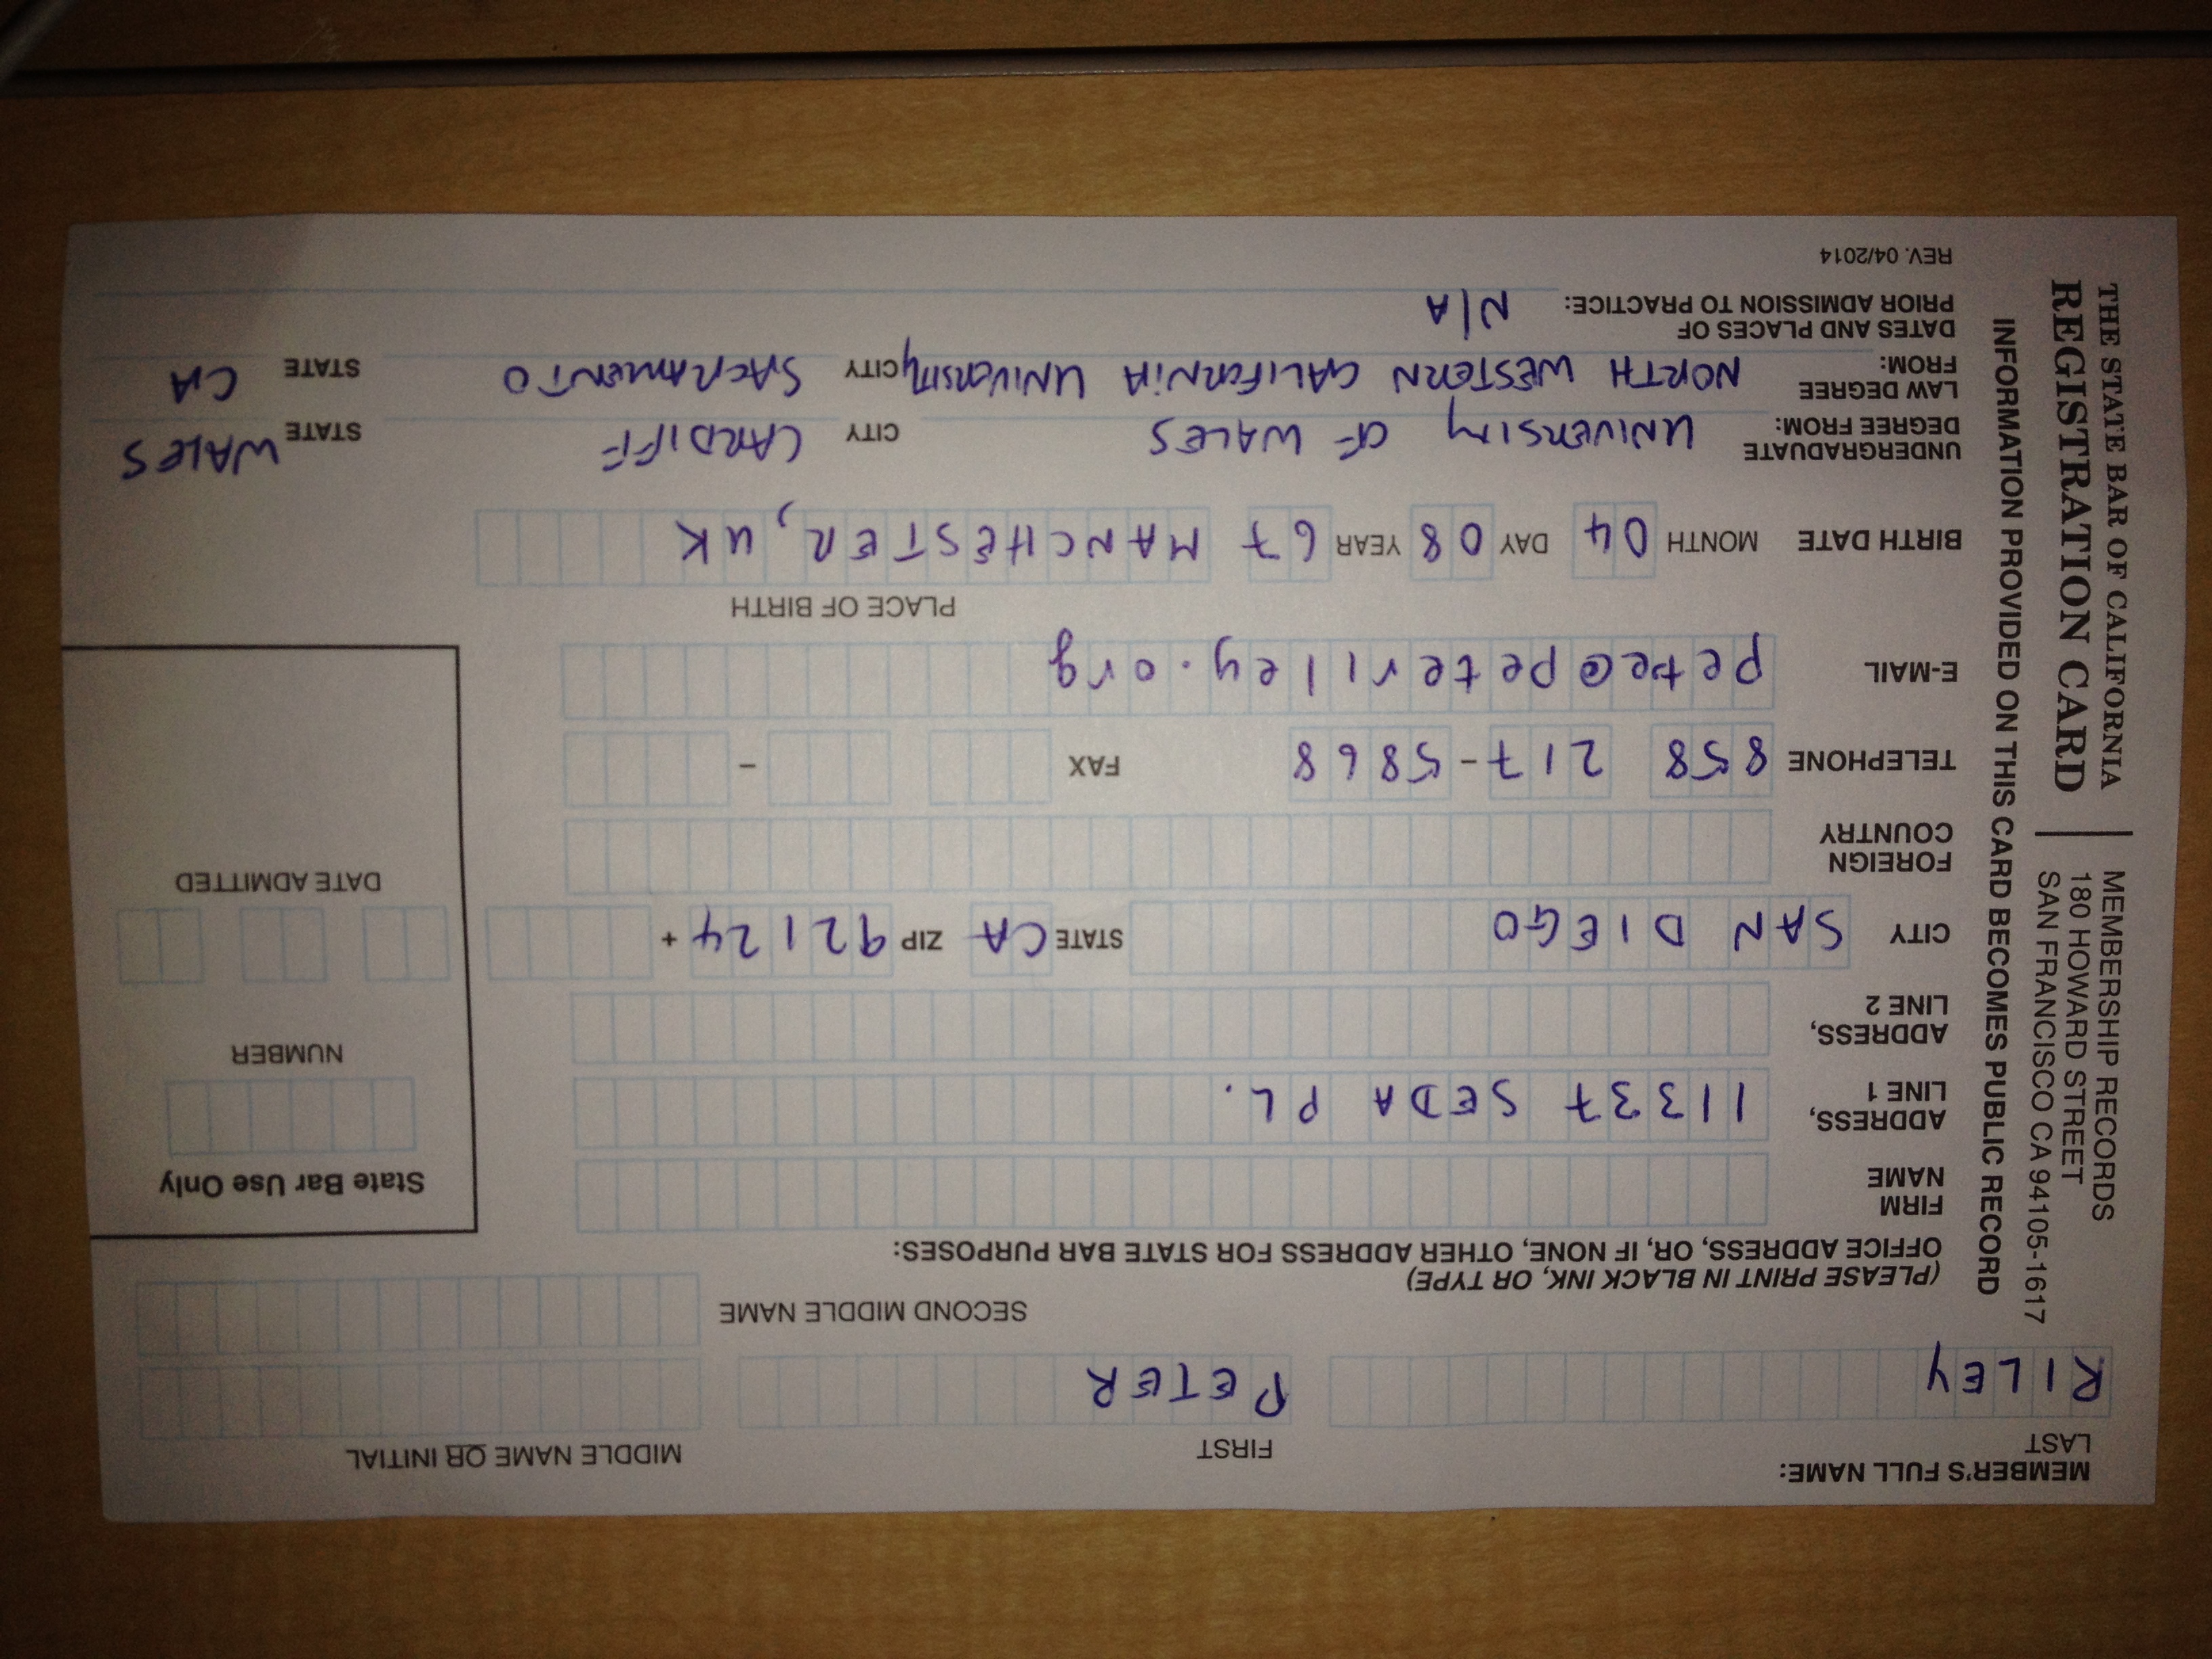 MEMBER'S FULL NAME:
LAST FIRST MIDDLE NAME OR INITIAL
RILEY PETER
SECOND MIDDLE NAME
(PLEASE PRINT IN BLACK INK, OR TYPE)
OFFICE ADDRESS, OR, IF NONE, OTHER ADDRESS FOR STATE BAR PURPOSES:
FIRM NAME
ADDRESS, LINE 1 11337 SEDA PL.
ADDRESS, LINE 2
CITY SAN DIEGO STATE CA ZIP 92124 +
FOREIGN COUNTRY
TELEPHONE 858 217-5868 FAX -
E-MAIL pete@peteriley.org
PLACE OF BIRTH
BIRTH DATE MONTH 04 DAY 08 YEAR 67 MANCHESTER, UK
UNDERGRADUATE DEGREE FROM: UNIVERSITY OF WALES CITY CARDIFF STATE WALES
LAW DEGREE FROM: NORTH WESTERN CALIFORNIA UNIVERSITY CITY SACRAMENTO STATE CA
DATES AND PLACES OF
PRIOR ADMISSION TO PRACTICE: N/A
REV. 04/2014
State Bar Use Only
NUMBER
DATE ADMITTED
THE STATE BAR OF CALIFORNIA
REGISTRATION CARD
MEMBERSHIP RECORDS
180 HOWARD STREET
SAN FRANCISCO CA 94105-1617
INFORMATION PROVIDED ON THIS CARD BECOMES PUBLIC RECORD